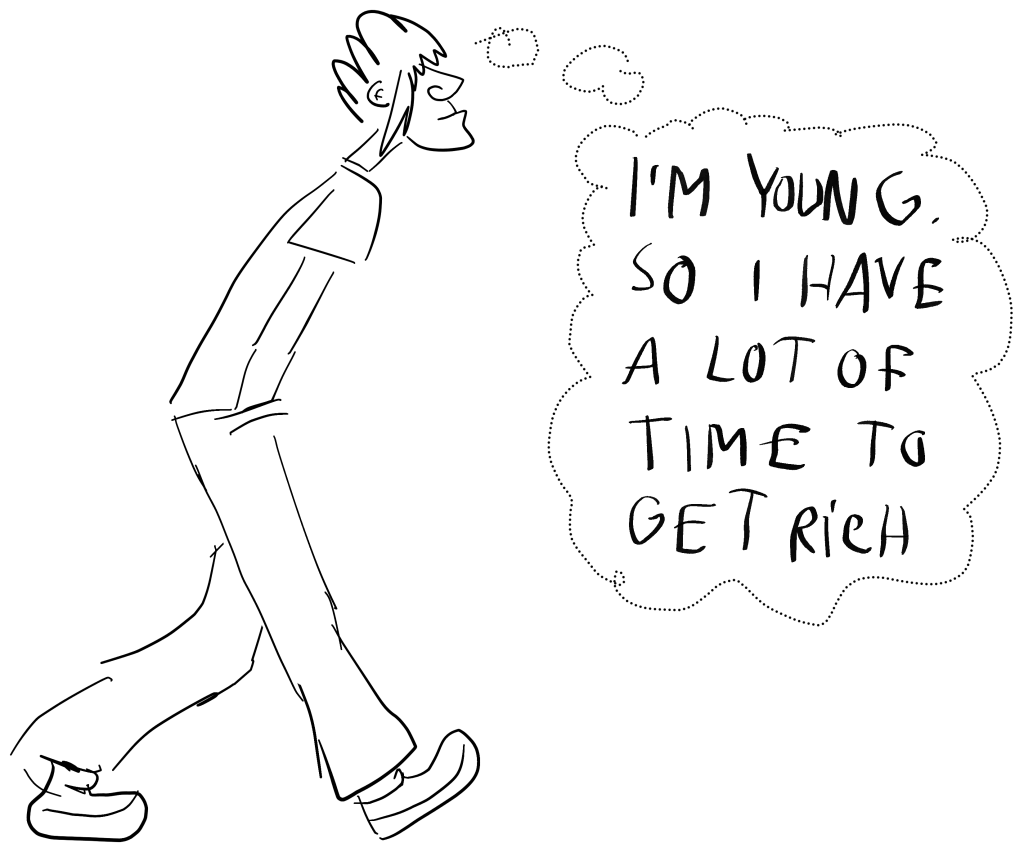 I'M YOUNG.
SO I HAVE
A LOT OF
TIME TO
GET RiCH